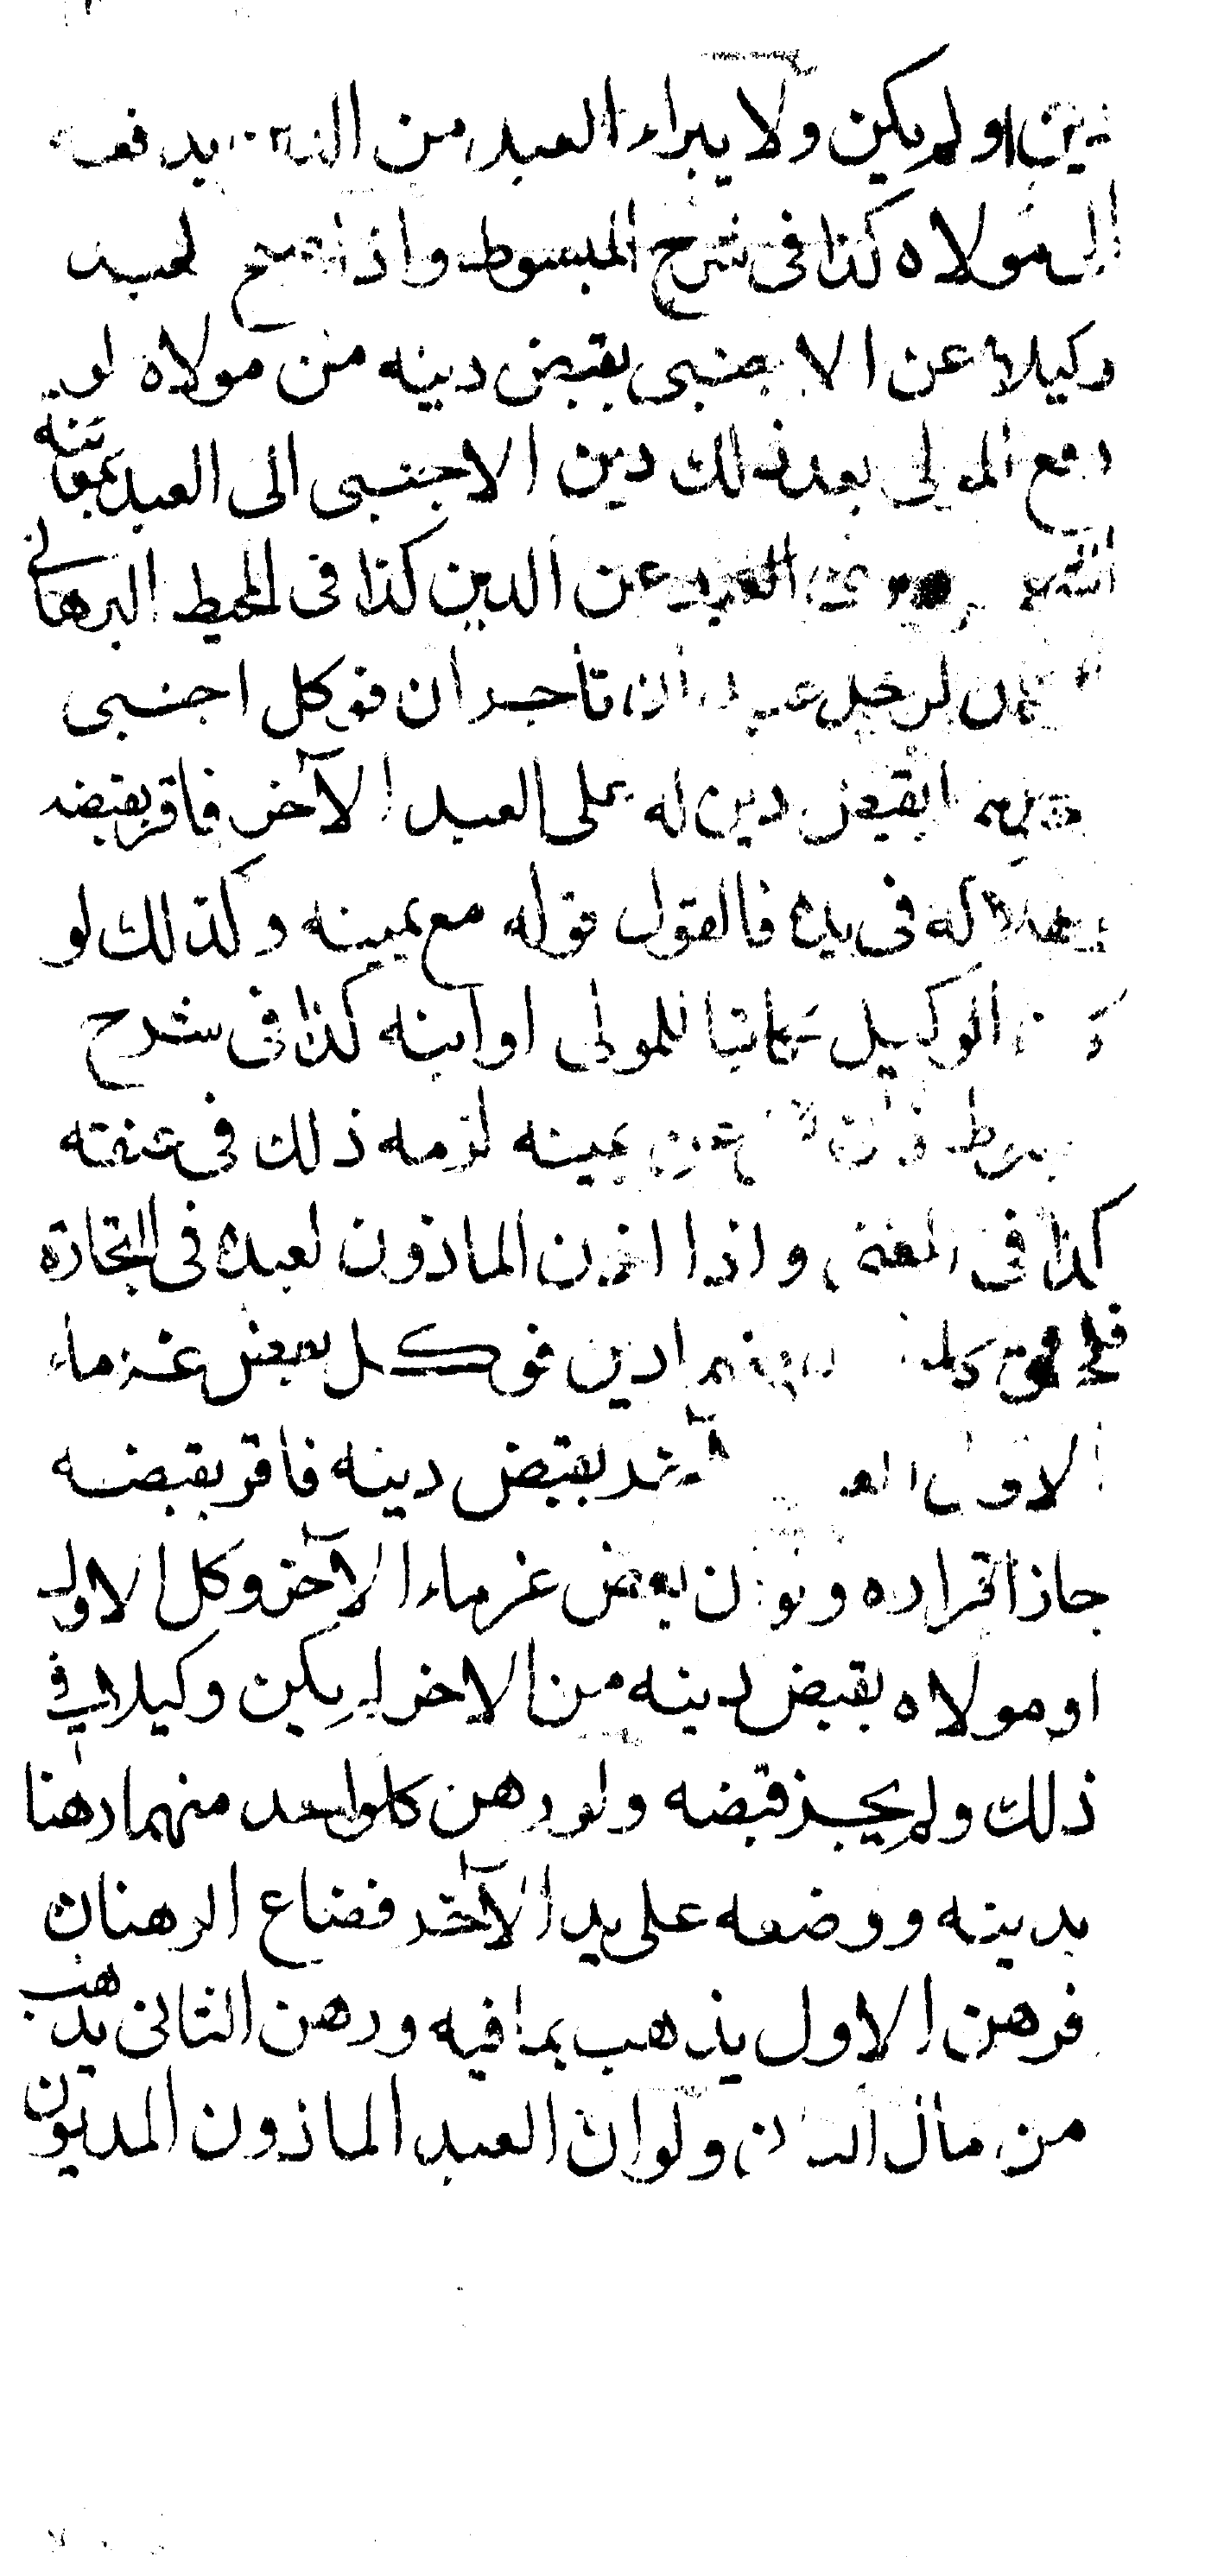 دين اولم يكن ولا يبراء العبد من الدين بدفعه
الى مولاه كذا فى شرح المبسوط واذا صح لعبد
وكيلا عن الاجنبى بقبض دينه من مولاه لو
دفع المولى بعد ذلك دين الاجنبى الى العبد بمعاينة
العبد عن الدين كذا فى المحيط البرهانى
لرجل تاجران فوكل اجنبى
بقبض دين له على العبد الآخر فاقر بقبضه
وهلاكه فى يده فالقول قوله مع يمينه وكذلك لو
الوكيل مكاتبا للمولى او ابنه كذا فى شرح
عن يمينه لزمه ذلك فى عنقه
كذا فى المغنى واذا اذن الماذون لعبده فى التجارة
دين فوكل بعض غرماء
الاول بقبض دينه فاقر بقبضه
جاز اقراره ولو ان بعض غرماء الآخر وكل الاول
او مولاه بقبض دينه من الاخر لم يكن وكيلا فى
ذلك ولم يجز قبضه ولو رهن كل واحد منهما رهنا
بدينه ووضعه على يد الآخر فضاع الرهنان
فرهن الاول يذهب بما فيه ورهن الثانى يذهب
من مال ولو ان العبد الماذون المديون